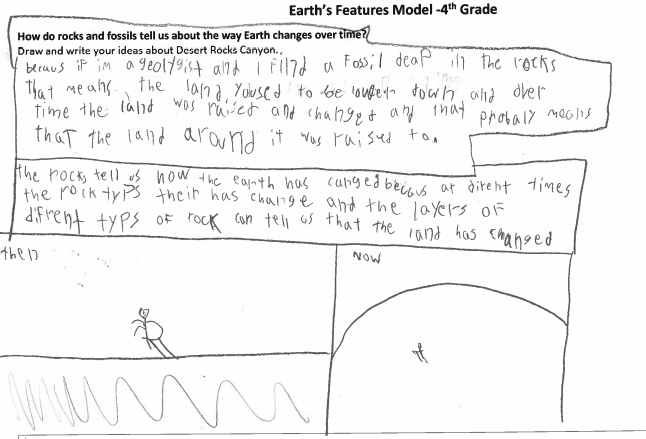 Earth's Features Model -4th Grade
How do rocks and fossils tell us about the way Earth changes over time?
Draw and write your ideas about Desert Rocks Canyon.
becaus if im a geolygist and I Filnd a Fossil deap in the rocks
that means the land yoused to be louder down and over
time the land was raised and changed and that probaly means
that the land around it was raised to.
the rocks tell us how the earth has canged becaus at dirent times
the rock typs their has change and the layers of
difrent typs of rock can tell us that the land has changed
then
NOW